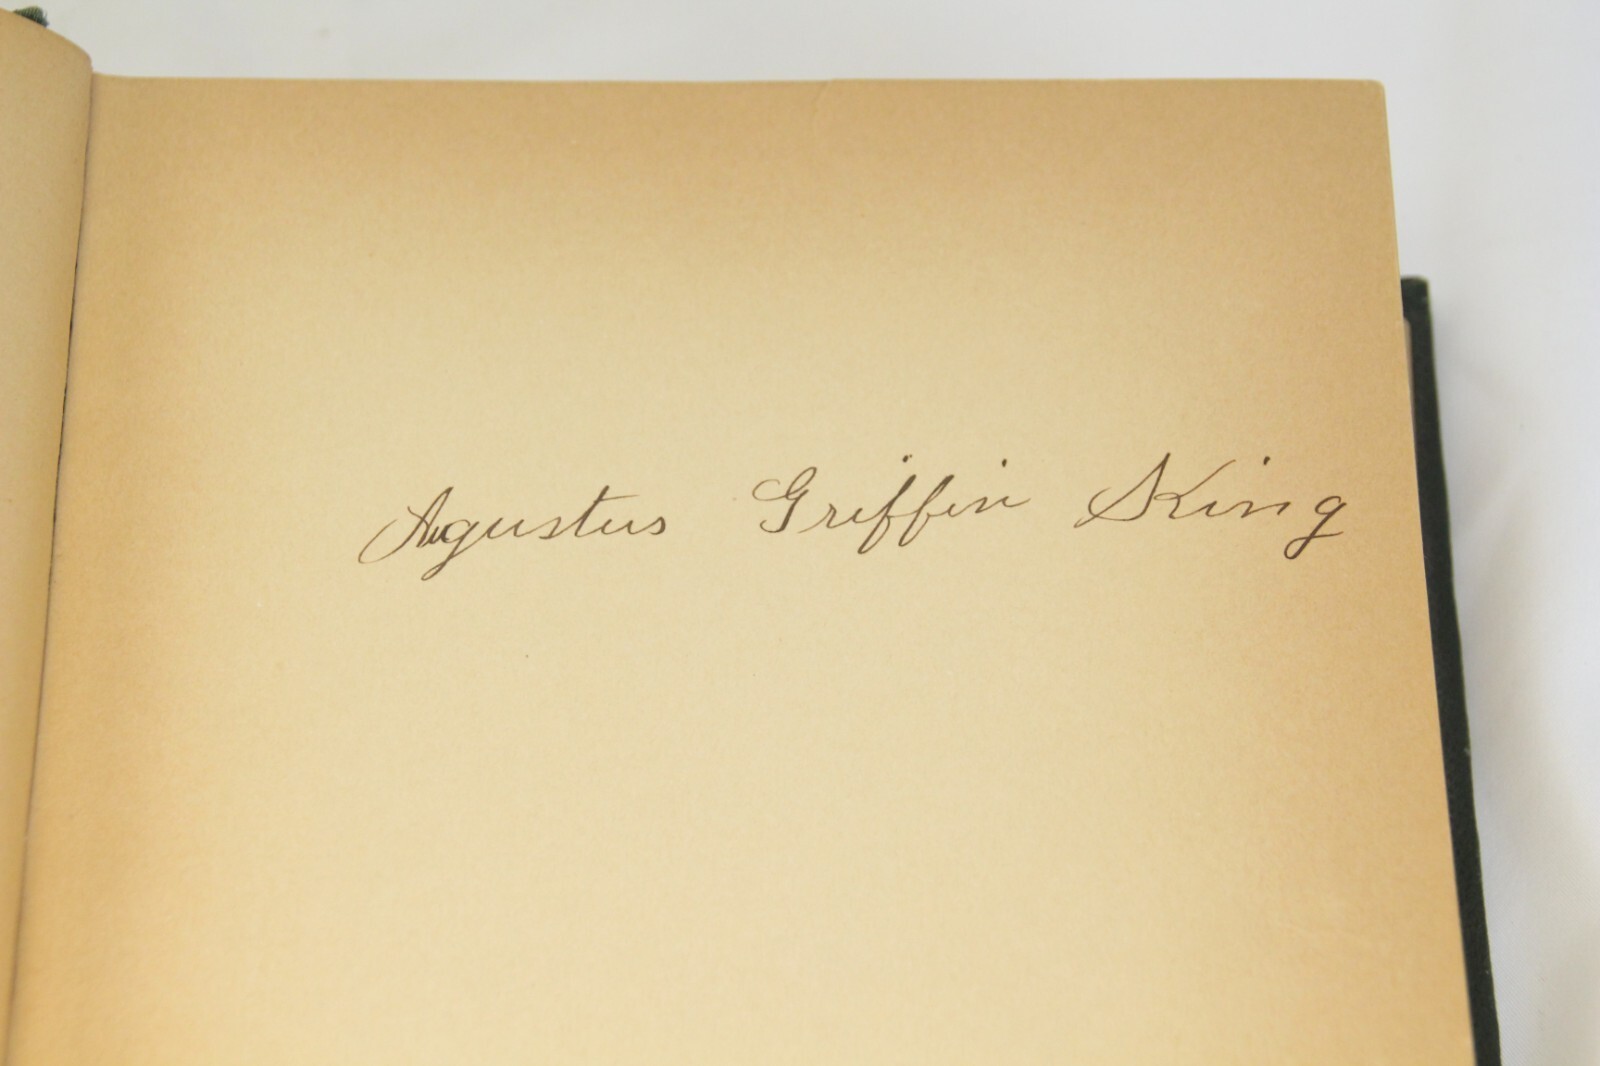 Augustus Griffin King